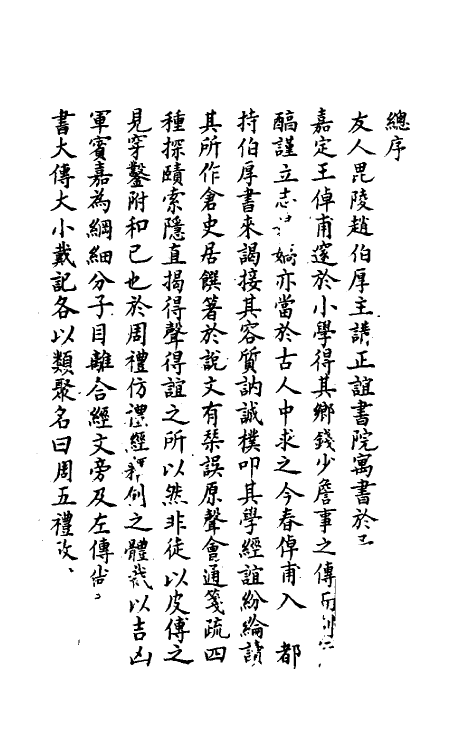 總序
友人毘陵趙伯厚主講正誼書院寓書於
嘉定王倬甫邃於小學得其鄉錢少詹事之傳而
醕謹立志 亦當於古人中求之今春倬甫入 都
持伯厚書來謁接其容質訥誠樸叩其學經誼紛綸讀
其所作倉史居饌箸於說文有琹誤原聲會通箋疏四
種探賾索隱直揭得聲得誼之所以然非徒以皮傅之
見穿鑿附和已也於周禮仿禮經釋例之體裁以吉凶
軍賓嘉為綱細分子目離合經文旁及左傳
書大傳大小戴記各以類聚名曰周五禮攷、